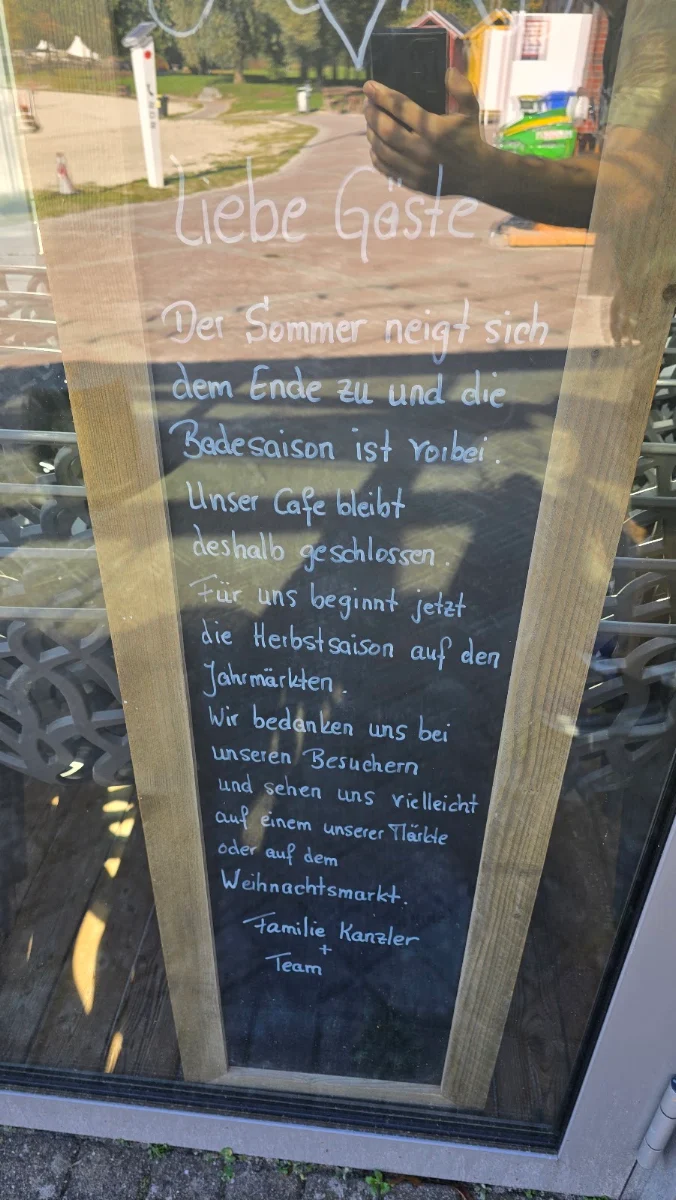 Liebe Gäste.
Der Sommer neigt sich
dem Ende zu und die
Badesaison ist vorbei.
Unser Cafe bleibt
deshalb geschlossen.
Für uns beginnt jetzt
die Herbstsaison auf den
Jahrmärkten.
Wir bedanken uns bei
unseren Besuchern
und sehen uns vielleicht
auf einem unserer Märkte
oder auf dem
Weihnachtsmarkt.
Familie Kanzler
+
Team